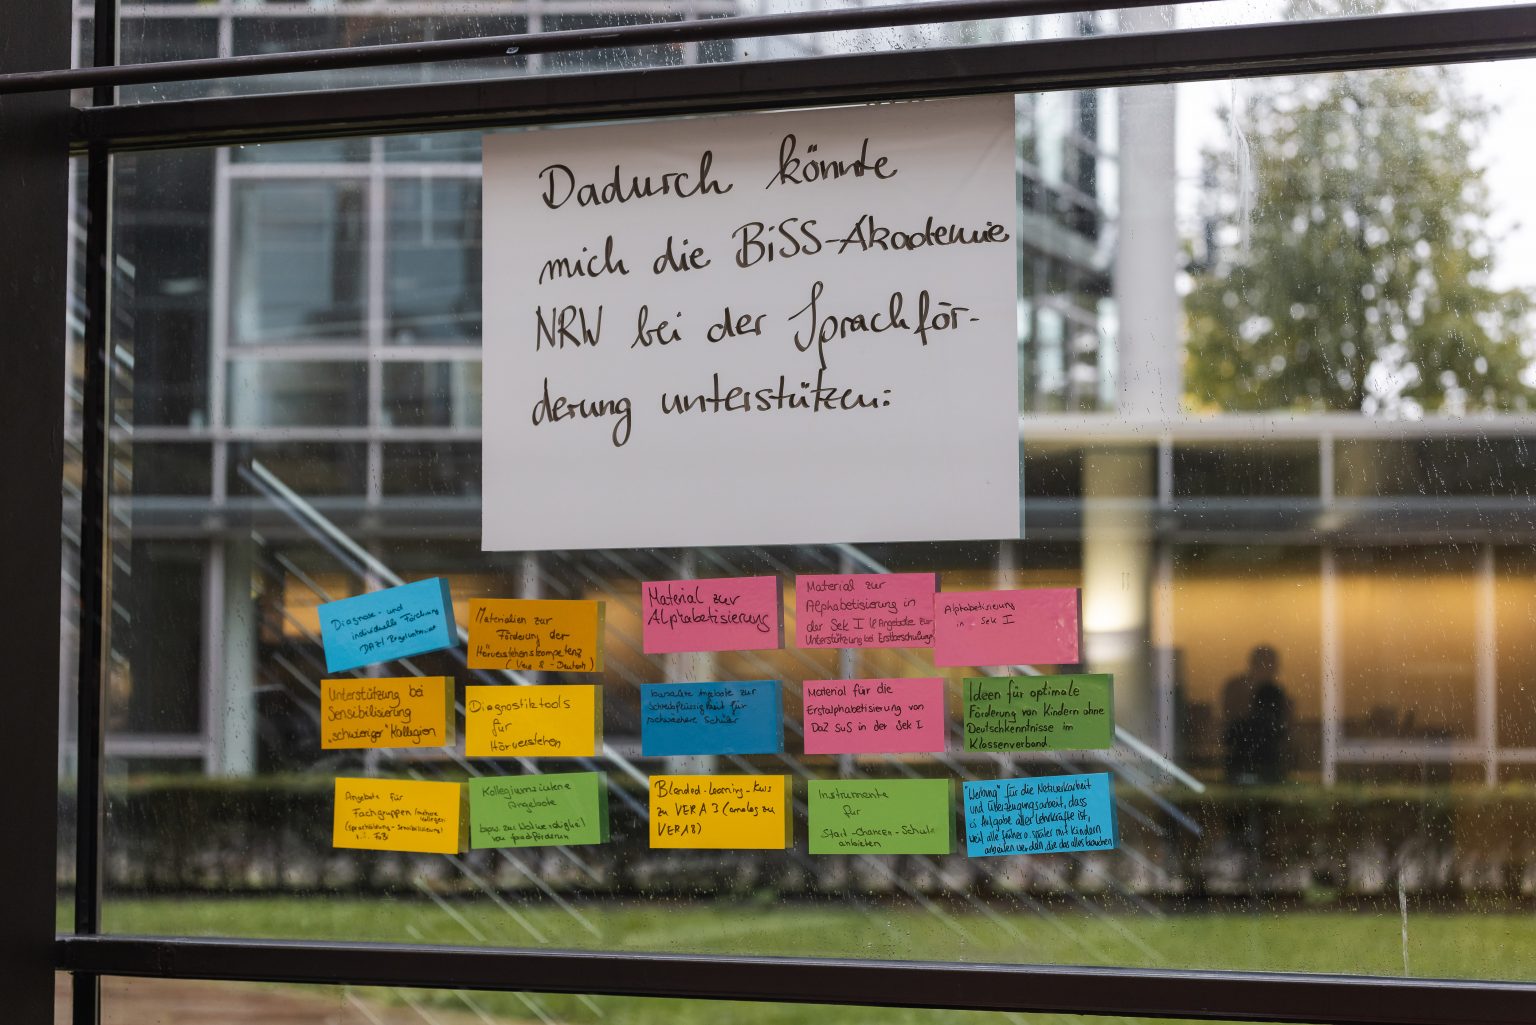 Dadurch könnte
mich die BiSS-Akademie
NRW bei der Sprachför-
derung unterstützen:
Diagnose- und
individuelle Förderung
DAZ/
Materialien zur
Förderung der
Hörverstehenskompetenz
(Vera 8 - Deutsch)
Material zur
Alphabetisierung
Material zur
Alphabetisierung in
der Sek I & Angebote zur
Unterstützung bei
Alphabetisierung
in Sek I
Unterstützung bei
Sensibilisierung
"schwieriger" Kollegien
Diagnostiktools
für
Hörverstehen
Angebote zur
Schreibflüssigkeit für
schwächere Schüler
Material für die
Erstalphabetisierung von
DaZ SuS in der Sek I
Ideen für optimale
Förderung von Kindern ohne
Deutschkenntnisse im
Klassenverband.
Angebote für
Fachgruppen
Kollegiumsinterne
Angebote
bspw. zur Notwendigkeit
von
Blended-Learning-Kurs
zu VERA 3 (analog zu
VERA 8)
Instrumente
für
Start-Chancen-Schulen
anbieten
"Werbung" für die Netzwerkarbeit
und Überzeugungsarbeit, dass
es Aufgabe aller Lehrkräfte ist,
weil alle früher o. später mit Kindern
arbeiten werden, die das alles brauchen